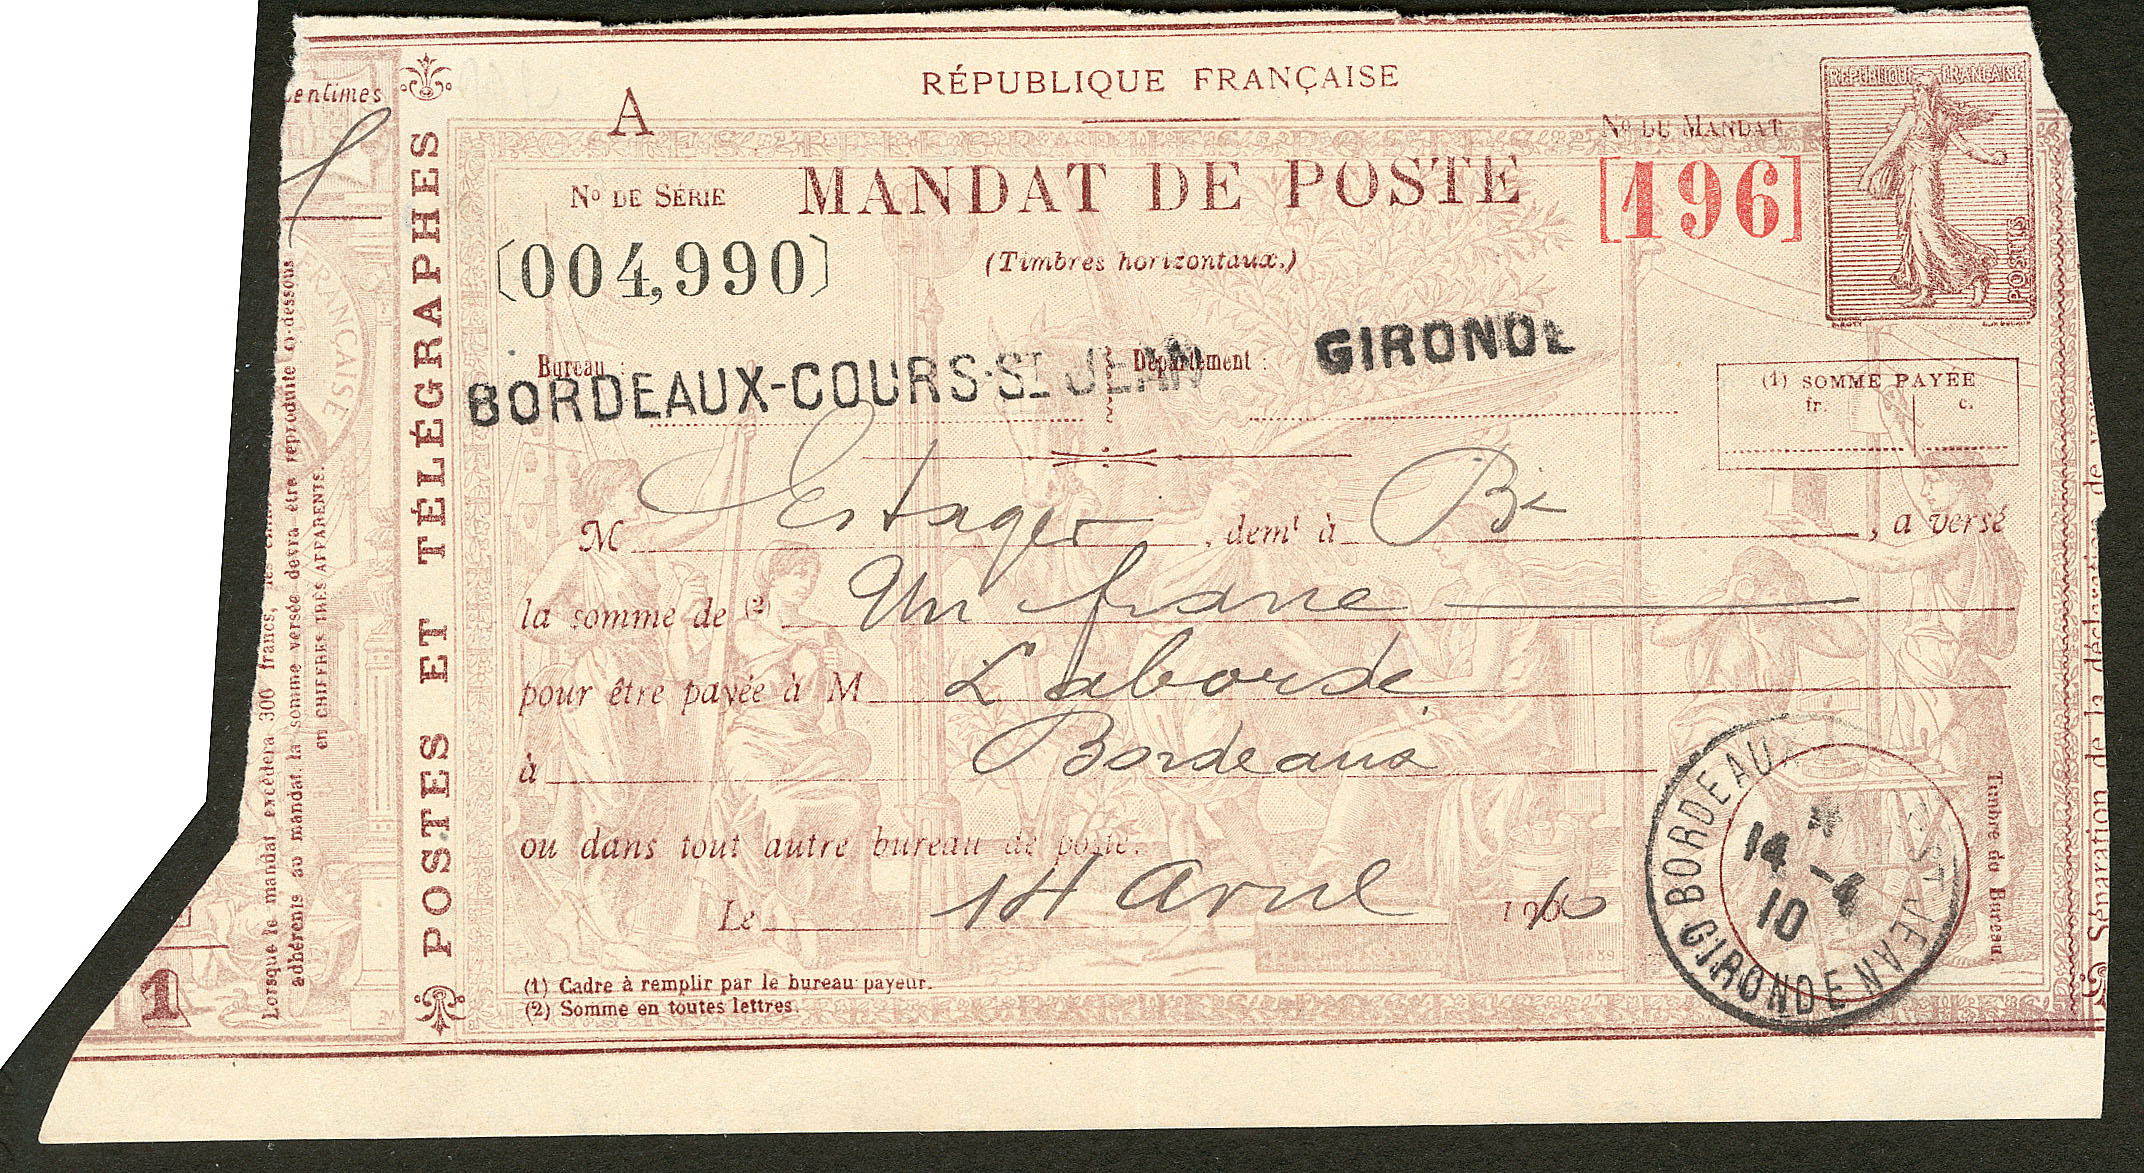 RÉPUBLIQUE FRANÇAISE
A
No DU MANDAT
[196]
REPUBLIQUE FRANÇAISE
POSTES
MANDAT DE POSTE
No DE SÉRIE
[004,990]
(Timbres horizontaux.)
Bureau :
BORDEAUX-COURS-ST JEAN
Département :
GIRONDE
(1) SOMME PAYÉE
fr. c.
M Estager, demt à Bx, a versé
la somme de (2) Un franc
pour être payée à M Laborde
à Bordeaux
ou dans tout autre bureau de poste.
Le 14 Avril 1910
(1) Cadre à remplir par le bureau payeur.
(2) Somme en toutes lettres.
BORDEAUX ST JEAN
14 -4
10
GIRONDE
Timbre du Bureau
POSTES ET TÉLÉGRAPHES
entimes
FRANÇAISE
Lorsque le mandat excédera 300 francs, les
adhérents au mandat, la somme versée devra être reproduite ci-dessous
en CHIFFRES TRÈS APPARENTS.
1
Séparation de la déclaration de